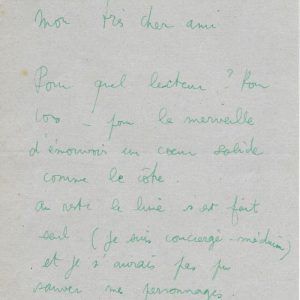 Mon très cher ami
Pour quel lecteur ? Pour
toto – pour la merveille
d'émouvoir un cœur solide
comme le vôtre.
Au reste le livre s'est fait
seul (je suis concierge-médium)
et je n'aurais pas pu
sauver mes personnages